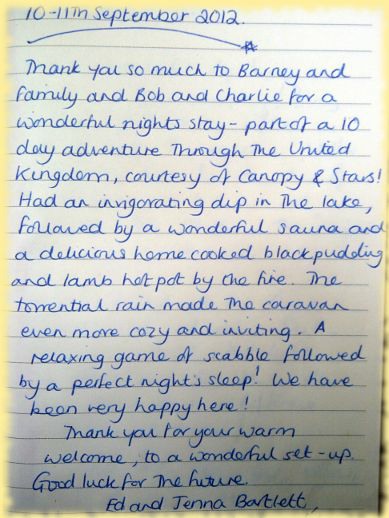 10-11th September 2012.
Thank you so much to Barney and
family and Bob and Charlie for a
wonderful nights stay - part of a 10
day adventure through the United
Kingdom, courtesy of Canopy & Stars!
Had an invigorating dip in the lake,
followed by a wonderful sauna and
a delicious home cooked black pudding
and lamb hot pot by the fire. The
torrential rain made the caravan
even more cozy and inviting. A
relaxing game of scabble followed
by a perfect night's sleep! We have
been very happy here!
Thank you for your warm
welcome, to a wonderful set-up.
Good luck for the future.
Ed and Jenna Bartlett,